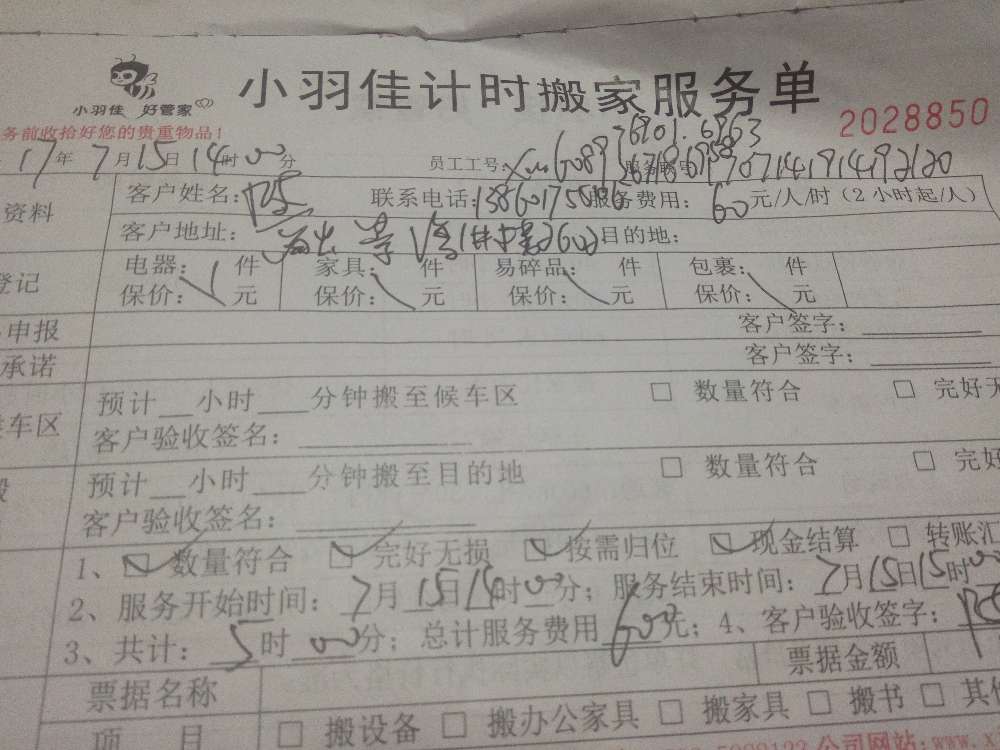 小羽佳 好管家
小羽佳计时搬家服务单
2028850
务前收拾好您的贵重物品！
17年 7月15日 14时00分 员工工号： 服务账号
资料 客户姓名： 联系电话： 服务费用：60元/人/时（2小时起/人）
客户地址： 目的地：
登记 电器： 件 家具： 件 易碎品： 件 包裹： 件
保价： 元 保价： 元 保价： 元 保价： 元
申报 客户签字：
承诺 客户签字：
车区 预计 小时 分钟搬至候车区 □ 数量符合 □ 完好无
客户验收签名：
搬 预计 小时 分钟搬至目的地 □ 数量符合 □ 完好
客户验收签名：
1、☑ 数量符合 ☑ 完好无损 ☑ 按需归位 ☑ 现金结算 □ 转账汇
2、服务开始时间：7月15日14时00分；服务结束时间：7月15日15时00
3、共计：5时00分；总计服务费用600元；4、客户验收签字：
票据名称 票据金额
项 目 □ 搬设备 □ 搬办公家具 □ 搬家具 □ 搬书 □ 其他
公司网站：www.x